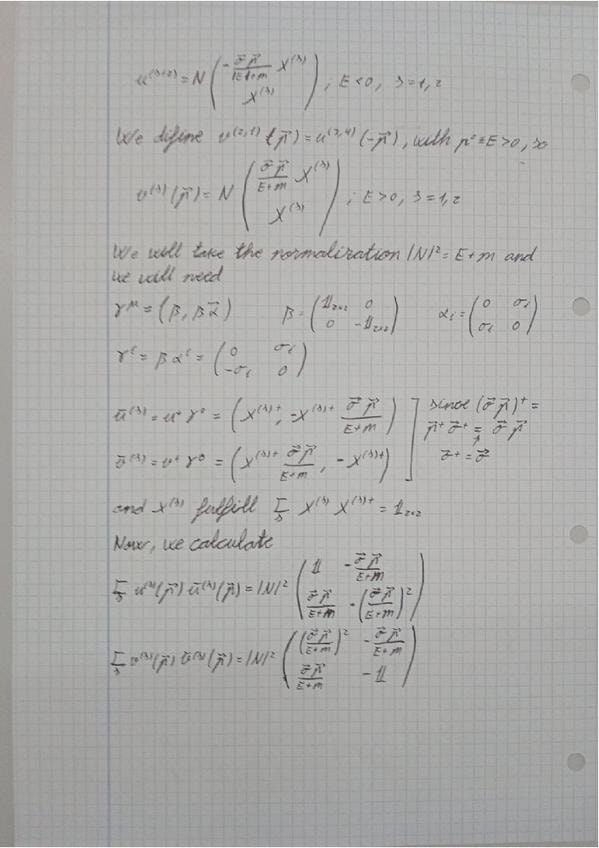 u^{(s+2)} = N ( -\frac{\vec{σ} \vec{p}}{|E|+m} χ^{(s)} ; χ^{(s)} ) ; E<0, s=1,2
We define v^{(2,1)} (\vec{p}) = u^{(3,4)} (-\vec{p}), with p^0 ≡ E>0, so
v^{(s)} (\vec{p}) = N ( \frac{\vec{σ} \vec{p}}{E+m} χ^{(s)} ; χ^{(s)} ) ; E>0, s=1,2
We will take the normalization |N|^2 = E+m and
we will need
γ^μ = (β, β\vec{α}) β = ( 𝟙_{2x2} 0 ; 0 -𝟙_{2x2} ) α_i = ( 0 σ_i ; σ_i 0 )
γ^i = β α^i = ( 0 σ_i ; -σ_i 0 )
\bar{u}^{(s)} = u^+ γ^0 = ( χ^{(s)+}, -χ^{(s)+} \frac{\vec{σ} \vec{p}}{E+m} ) ] since (\vec{σ} \vec{p})^+ =
\vec{p}^+ \vec{σ}^+ = \vec{σ} \vec{p}
\bar{v}^{(s)} = v^+ γ^0 = ( χ^{(s)+} \frac{\vec{σ} \vec{p}}{E+m}, -χ^{(s)+} ) ↑ \vec{σ}^+ = \vec{σ}
and χ^{(s)} fulfill Σ_s χ^{(s)} χ^{(s)+} = 𝟙_{2x2}
Now, we calculate
Σ_s u^{(s)}(\vec{p}) \bar{u}^{(s)}(\vec{p}) = |N|^2 ( 𝟙 -\frac{\vec{σ} \vec{p}}{E+m} ; \frac{\vec{σ} \vec{p}}{E+m} -(\frac{\vec{σ} \vec{p}}{E+m})^2 )
Σ_s v^{(s)}(\vec{p}) \bar{v}^{(s)}(\vec{p}) = |N|^2 ( (\frac{\vec{σ} \vec{p}}{E+m})^2 -\frac{\vec{σ} \vec{p}}{E+m} ; \frac{\vec{σ} \vec{p}}{E+m} -𝟙 )